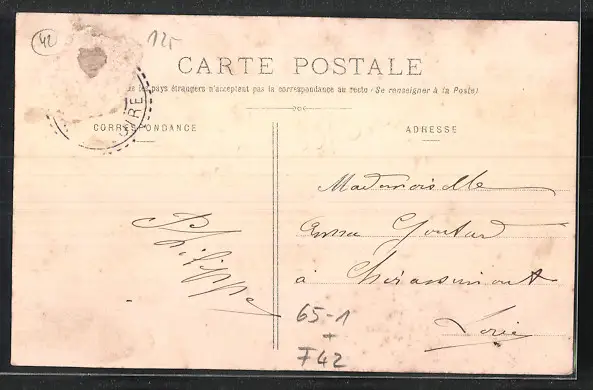 42
125
CARTE POSTALE
les pays étrangers n'acceptent pas la correspondance au recto (Se renseigner à la Poste)
CORRESPONDANCE
Philippe
ADRESSE
Mademoiselle
Emma Goutard
à Chirassimont
Loire
65-1
+
F42